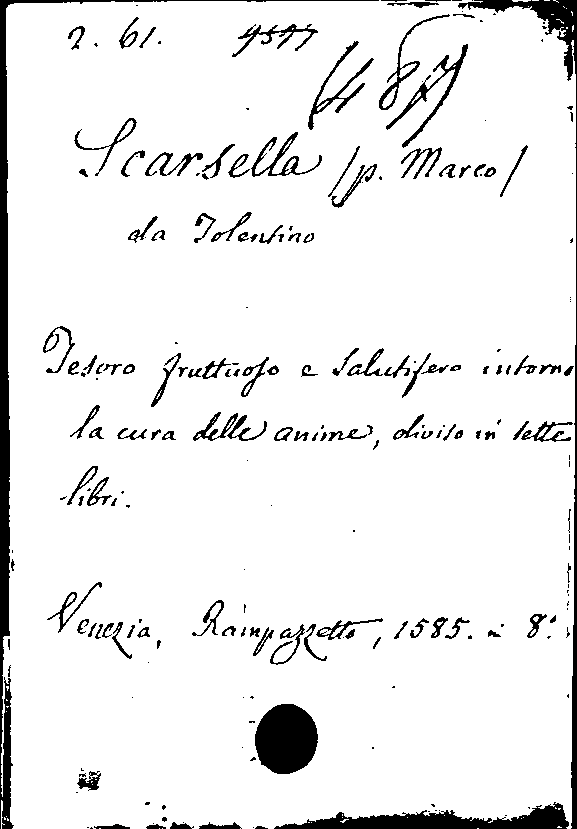 2. 61.
(487)
Scarsella /p. Marco/
da Tolentino
Tesoro fruttuoso e salutifero intorno
la cura delle anime, diviso in sette
libri.
Venezia, Rampazzetto, 1585. in 8.°